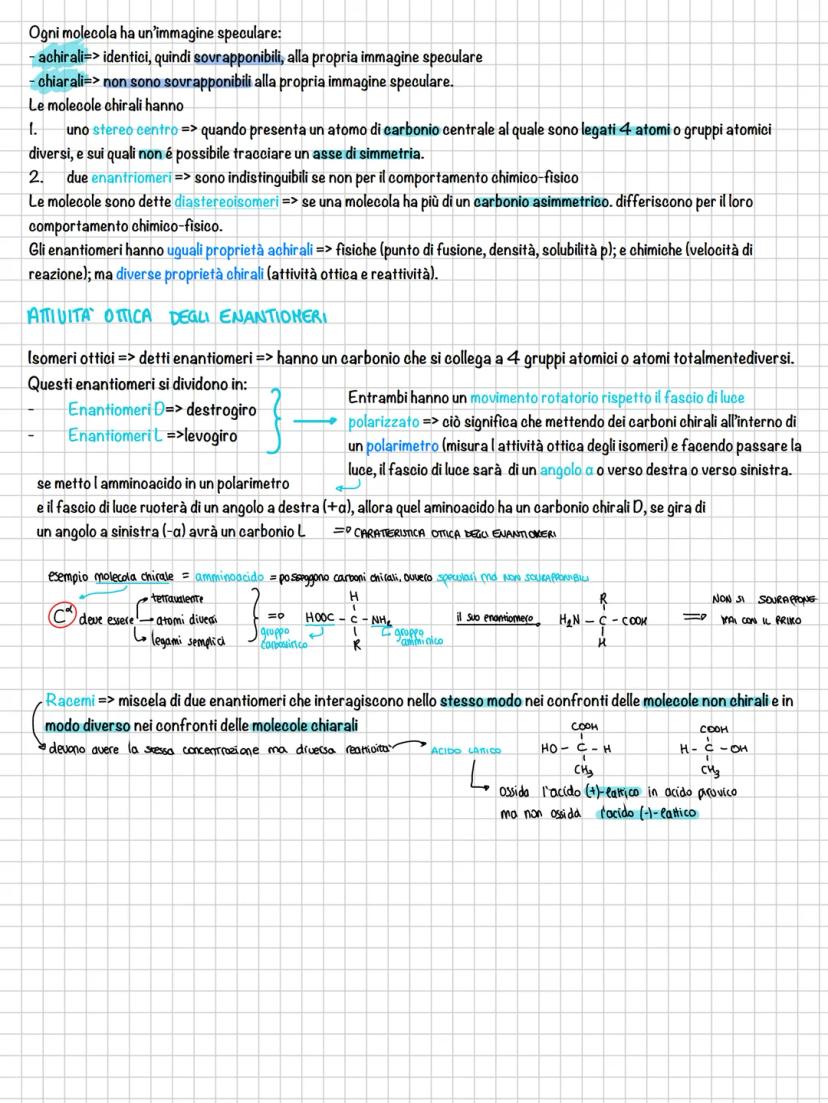 Ogni molecola ha un'immagine speculare:
- achirali=> identici, quindi sovrapponibili, alla propria immagine speculare
- chiarali=> non sono sovrapponibili alla propria immagine speculare.
Le molecole chirali hanno
1. uno stereo centro => quando presenta un atomo di carbonio centrale al quale sono legati 4 atomi o gruppi atomici
diversi, e sui quali non é possibile tracciare un asse di simmetria.
2. due enantriomeri => sono indistinguibili se non per il comportamento chimico-fisico
Le molecole sono dette diastereoisomeri => se una molecola ha più di un carbonio asimmetrico. differiscono per il loro
comportamento chimico-fisico.
Gli enantiomeri hanno uguali proprietà achirali => fisiche (punto di fusione, densità, solubilità p); e chimiche (velocità di
reazione); ma diverse proprietà chirali (attività ottica e reattività).
ATTIVITA' OTTICA DEGLI ENANTIOMERI
Isomeri ottici => detti enantiomeri => hanno un carbonio che si collega a 4 gruppi atomici o atomi totalmentediversi.
Questi enantiomeri si dividono in:
- Enantiomeri D=> destrogiro
- Enantiomeri L =>levogiro
Entrambi hanno un movimento rotatorio rispetto il fascio di luce
polarizzato => ciò significa che mettendo dei carboni chirali all'interno di
un polarimetro (misura l attività ottica degli isomeri) e facendo passare la
luce, il fascio di luce sarà di un angolo α o verso destra o verso sinistra.
se metto l amminoacido in un polarimetro
e il fascio di luce ruoterà di un angolo a destra (+α), allora quel aminoacido ha un carbonio chirali D, se gira di
un angolo a sinistra (-α) avrà un carbonio L => CARATTERISTICA OTTICA DEGLI ENANTIOMERI
esempio molecola chirale = amminoacido = posseggono carboni chirali, ovvero speculari ma NON SOVRAPPONIBILI
Cα deve essere
tetravalente
atomi diversi
legami semplici
=> HOOC - C - NH2
H
R
gruppo carbossilico
gruppo amminico
il suo enantiomero
R
H2N - C - COOH
H
=> NON SI SOVRAPPONE
MAI CON IL PRIMO
Racemi => miscela di due enantiomeri che interagiscono nello stesso modo nei confronti delle molecole non chirali e in
modo diverso nei confronti delle molecole chiarali
devono avere la stessa concentrazione ma diversa reattivita'
ACIDO LATTICO
COOH
HO - C - H
CH3
COOH
H - C - OH
CH3
ossida l'acido (+)-lattico in acido piruvico
ma non ossida l'acido (-)-lattico